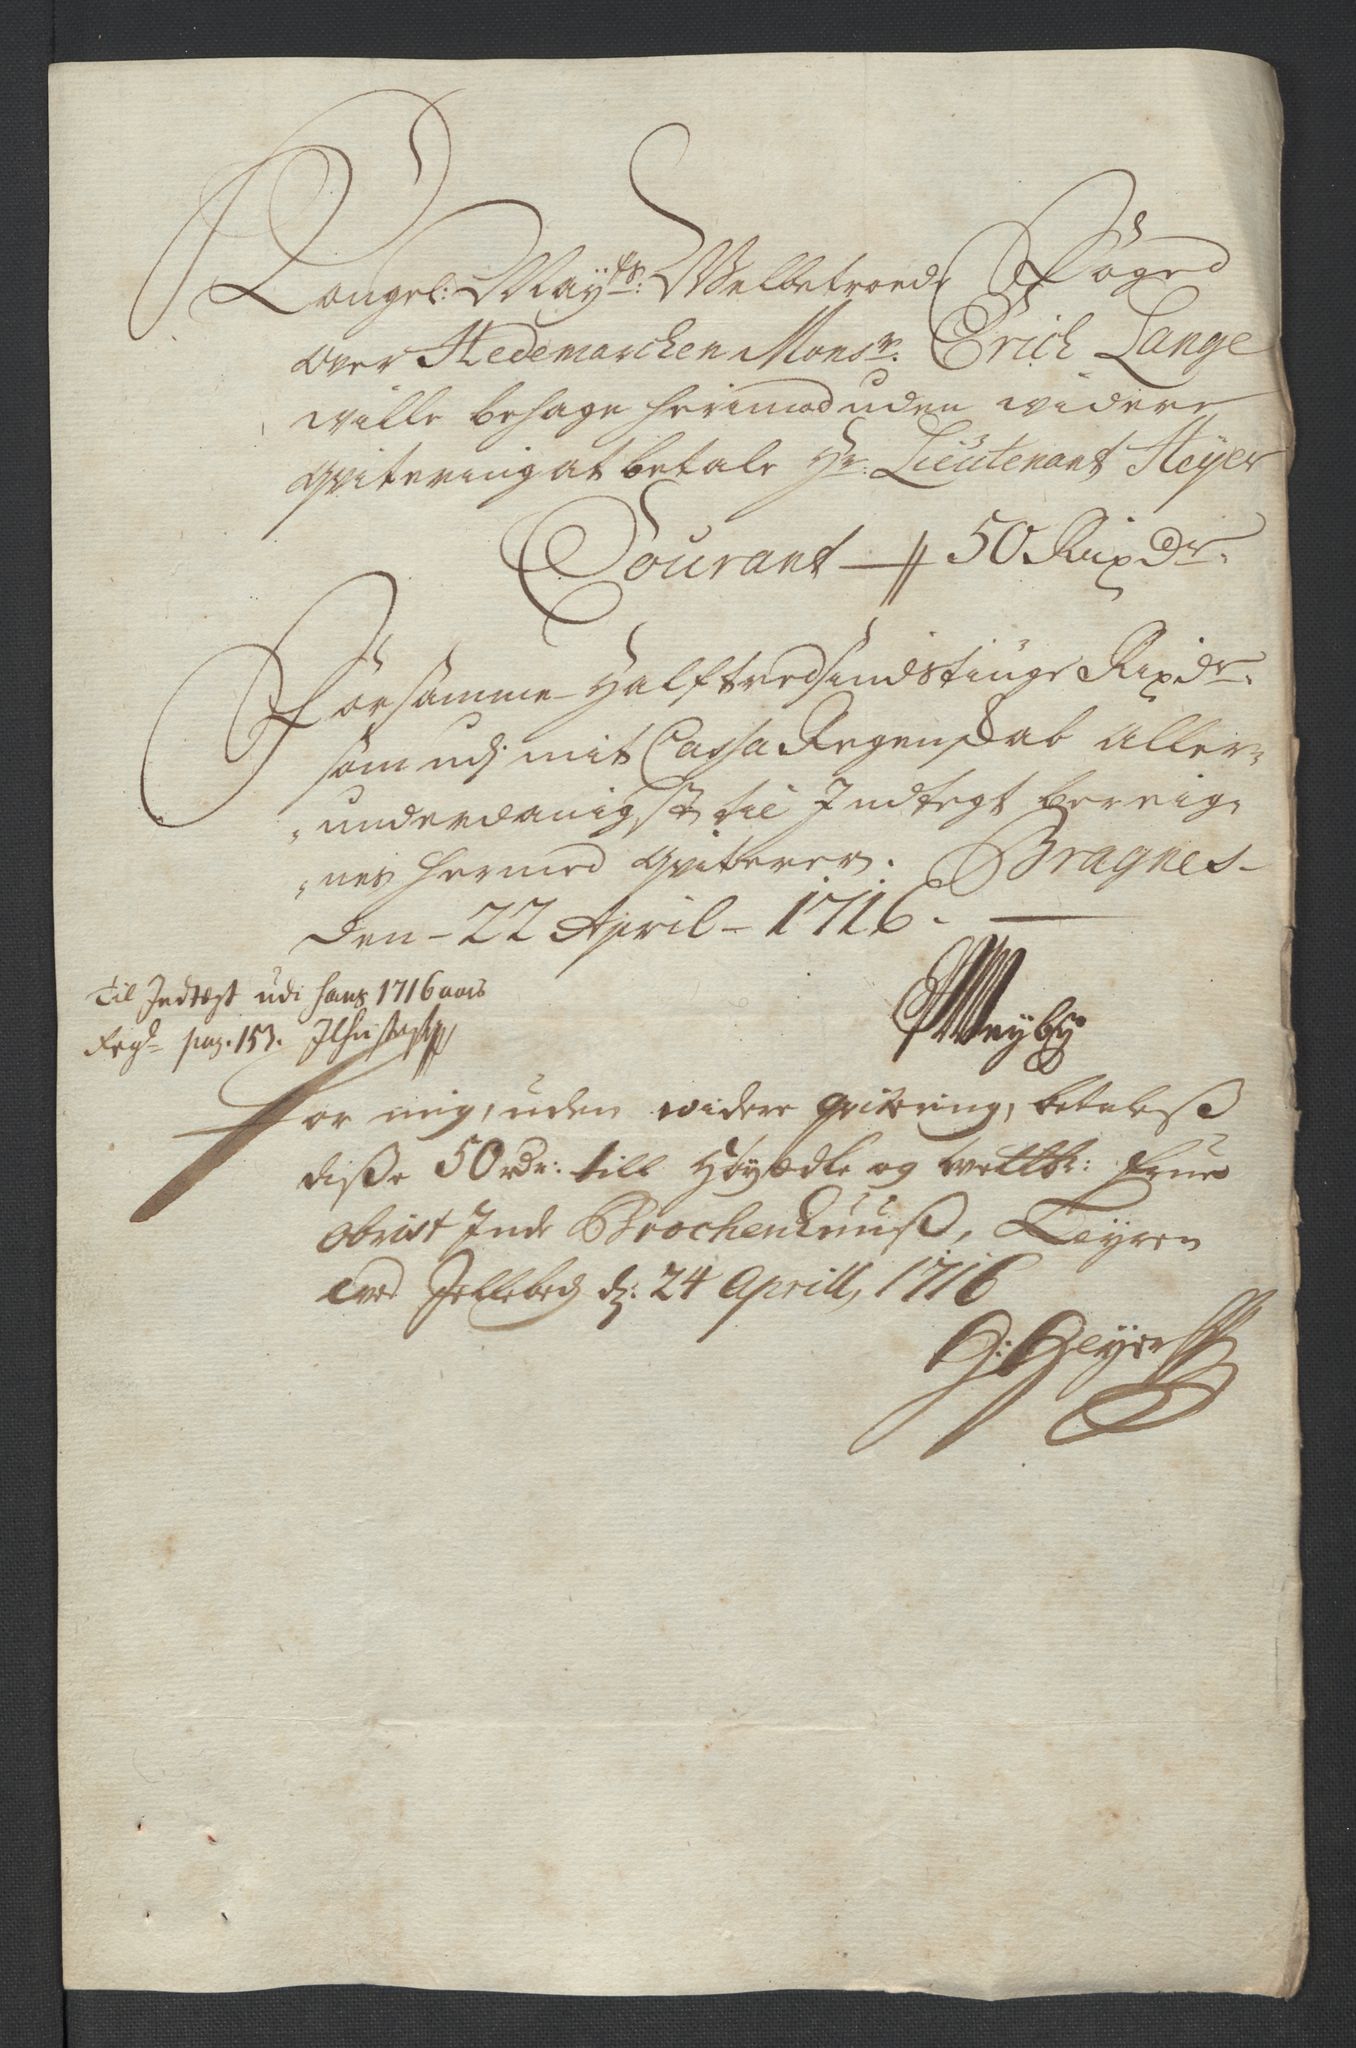 Kongel: Mayts: Welbetroede Foged
over Hedemarchen Monsr. Erich Lange
wille behage herimod uden widere
qvitering at betale Hr: Lieutenant Heyer
Courant — 50 Rixdr.
For samme Halftredsindstiuge Rixdr.
som udj mit Cassa Regenskab aller-
underdanigst til Indtegt bereig-
nes hermed qviterer. Bragnes-
den 22 April 1716.
Til Indtægt udi hans 1716 aars
Regn. pag. 153.
Meyby
For mig, uden widere qvitering, betaleß
diße 50 rdr: till Høyædle og welb: Frue
Obrist Brochenhuuß, Leyren
ved d: 24 Aprill, 1716
H: Heyer